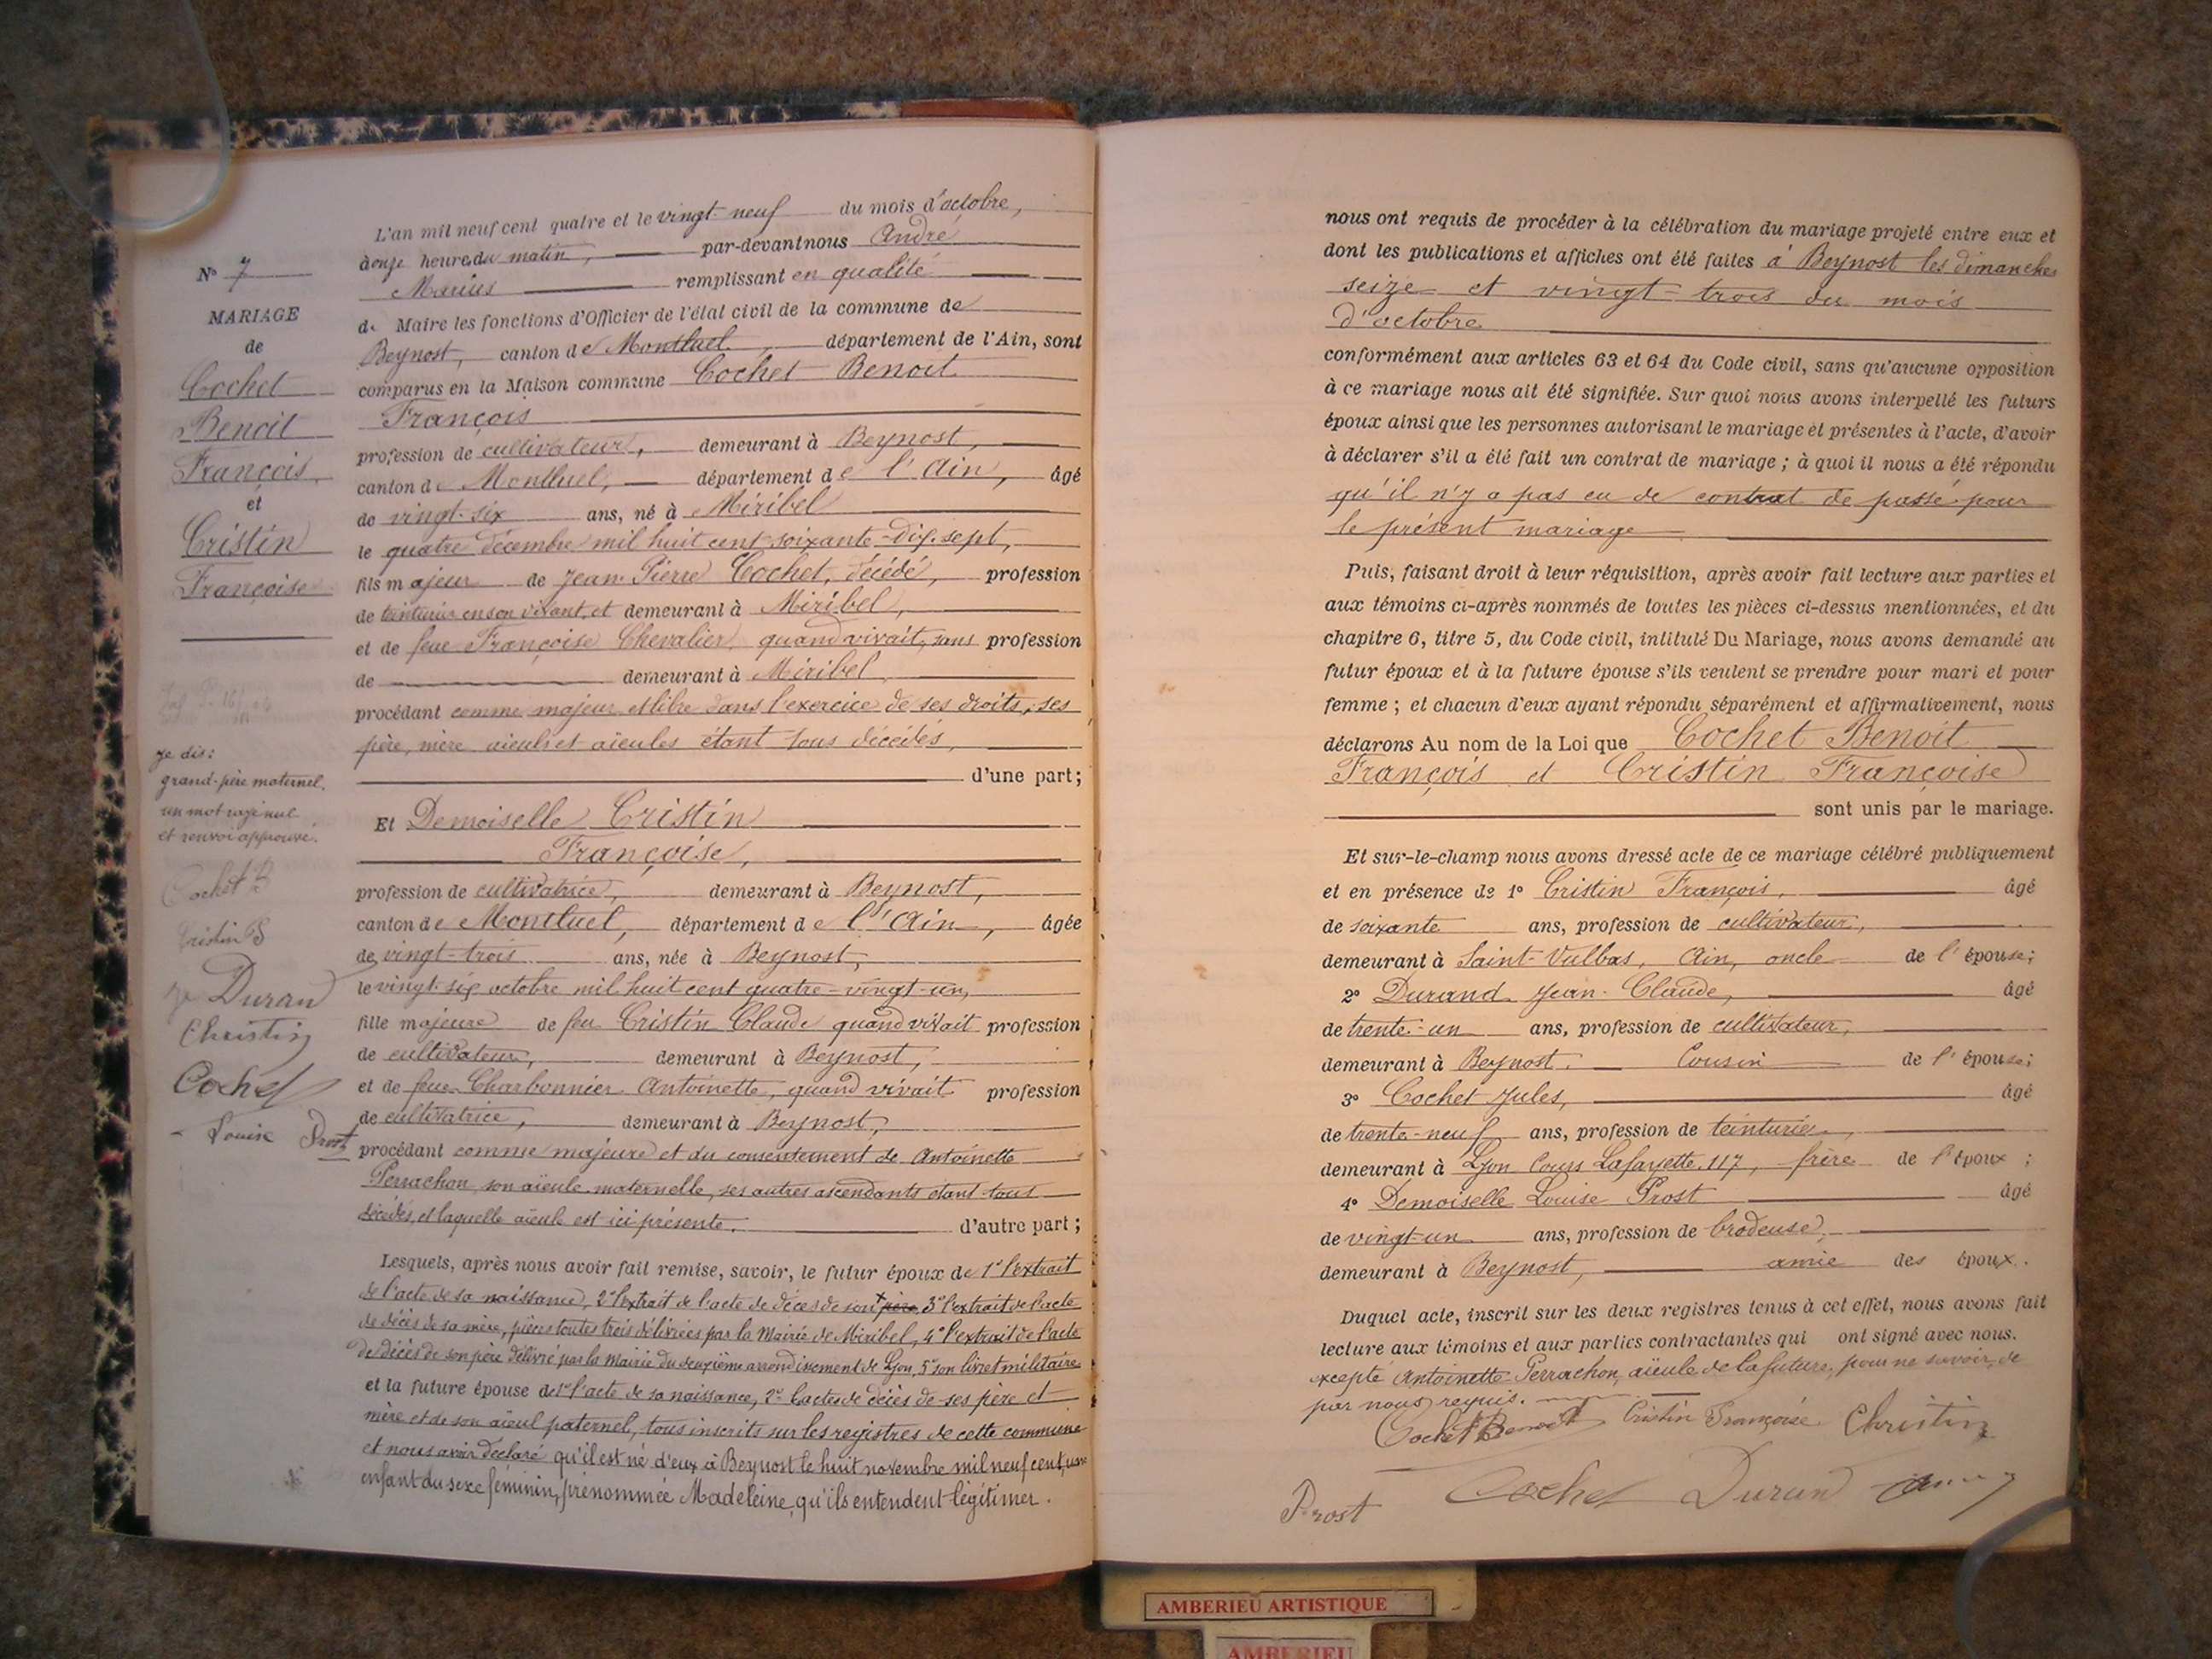 N° 7
MARIAGE
de
Cochet
Benoit
François,
et
Cristin
Françoise
je dis:
grand-père maternel.
un mot rayé nul
et renvoi approuvé.
Cochet B
Cristin F
Duran
Christin
Cochet
Louise Prost
L'an mil neuf cent quatre et le vingt-neuf du mois d'octobre,
à onze heures du matin, par-devant nous André
Marius remplissant en qualité
de Maire les fonctions d'Officier de l'état civil de la commune de
Beynost, canton de Montluel, département de l'Ain, sont
comparus en la Maison commune Cochet Benoit
François
profession de cultivateur, demeurant à Beynost,
canton de Montluel, département de l'Ain, âgé
de vingt-six ans, né à Miribel
le quatre décembre mil huit cent soixante-dix-sept,
fils majeur de Jean-Pierre Cochet, décédé, profession
de teinturier en son vivant, et demeurant à Miribel,
et de feue Françoise Chevalier, quand vivait, sans profession
de demeurant à Miribel,
procédant comme majeur et libre dans l'exercice de ses droits, ses
père, mère aïeuls et aïeules étant tous décédés,
d'une part;
Et Demoiselle Cristin
Françoise,
profession de cultivatrice, demeurant à Beynost,
canton de Montluel, département de l'Ain, âgée
de vingt-trois ans, née à Beynost,
le vingt-six octobre mil huit cent quatre-vingt-un,
fille majeure de feu Cristin Claude quand vivait profession
de cultivateur, demeurant à Beynost,
et de feue Charbonnier Antoinette, quand vivait profession
de cultivatrice, demeurant à Beynost,
procédant comme majeure et du consentement de Antoinette
Perrachon, son aïeule maternelle, ses autres ascendants étant tous
décédés, et laquelle aïeule est ici présente. d'autre part;
Lesquels, après nous avoir fait remise, savoir, le futur époux de 1° l'extrait
de l'acte de sa naissance, 2° l'extrait de l'acte de décès de son père, 3° l'extrait de l'acte
de décès de sa mère, pièces toutes trois délivrées par la Mairie de Miribel, 4° l'extrait de l'acte
de décès de son père délivré par la Mairie du deuxième arrondissement de Lyon, 5° son livret militaire
et la future épouse de 1° l'acte de sa naissance, 2° l'acte de décès de ses père et
mère et de son aïeul paternel, tous inscrits sur les registres de cette commune
et nous avoir déclaré qu'il est né d'eux à Beynost le huit novembre mil neuf cent, un
enfant du sexe féminin, prénommée Madeleine, qu'ils entendent légitimer.
nous ont requis de procéder à la célébration du mariage projeté entre eux et
dont les publications et affiches ont été faites à Beynost les dimanches
seize et vingt-trois du mois
d'octobre
conformément aux articles 63 et 64 du Code civil, sans qu'aucune opposition
à ce mariage nous ait été signifiée. Sur quoi nous avons interpellé les futurs
époux ainsi que les personnes autorisant le mariage et présentes à l'acte, d'avoir
à déclarer s'il a été fait un contrat de mariage ; à quoi il nous a été répondu
qu'il n'y a pas eu de contrat de passé pour
le présent mariage
Puis, faisant droit à leur réquisition, après avoir fait lecture aux parties et
aux témoins ci-après nommés de toutes les pièces ci-dessus mentionnées, et du
chapitre 6, titre 5, du Code civil, intitulé Du Mariage, nous avons demandé au
futur époux et à la future épouse s'ils veulent se prendre pour mari et pour
femme ; et chacun d'eux ayant répondu séparément et affirmativement, nous
déclarons Au nom de la Loi que Cochet Benoit
François et Cristin Françoise
sont unis par le mariage.
Et sur-le-champ nous avons dressé acte de ce mariage célébré publiquement
et en présence de 1° Cristin François, âgé
de soixante ans, profession de cultivateur,
demeurant à Saint-Vulbas, Ain, oncle de l'épouse;
2° Durand Jean-Claude, âgé
de trente-un ans, profession de cultivateur,
demeurant à Beynost, Cousin de l'épouse;
3° Cochet Jules, âgé
de trente-neuf ans, profession de teinturier,
demeurant à Lyon Cours Lafayette 117, frère de l'époux ;
4° Demoiselle Louise Prost âgé
de vingt-un ans, profession de brodeuse,
demeurant à Beynost, amie des époux.
Duquel acte, inscrit sur les deux registres tenus à cet effet, nous avons fait
lecture aux témoins et aux parties contractantes qui ont signé avec nous.
excepté Antoinette Perrachon, aïeule de la future, pour ne savoir, de
par nous requis.
Cochet Benoit Cristin Françoise Christin
Prost Cochet Duran
AMBERIEU ARTISTIQUE
AMBERIEU